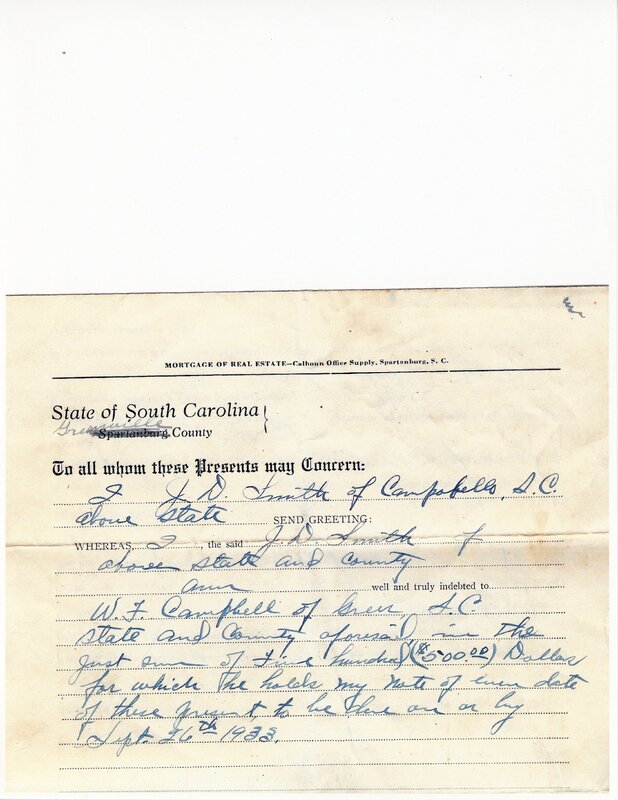 MORTGAGE OF REAL ESTATE—Calhoun Office Supply, Spartanburg, S. C.
State of South Carolina }
Greenville
Spartanburg County
To all whom these Presents may Concern:
I J. D. Smith of Campobello, S.C.
above state SEND GREETING:
WHEREAS, I , the said J. D. Smith of
above state and county
am well and truly indebted to
W. F. Campbell of Greer, S.C
State and County aforesaid, in the
just sum of Five hundred ($500.00) Dollars
for which he holds my note of even date
of these present, to be due on or by
Sept. 26th 1933.